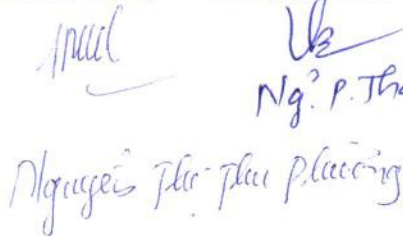 Ng. P. Th
Nguyễn Thị Thu Phương